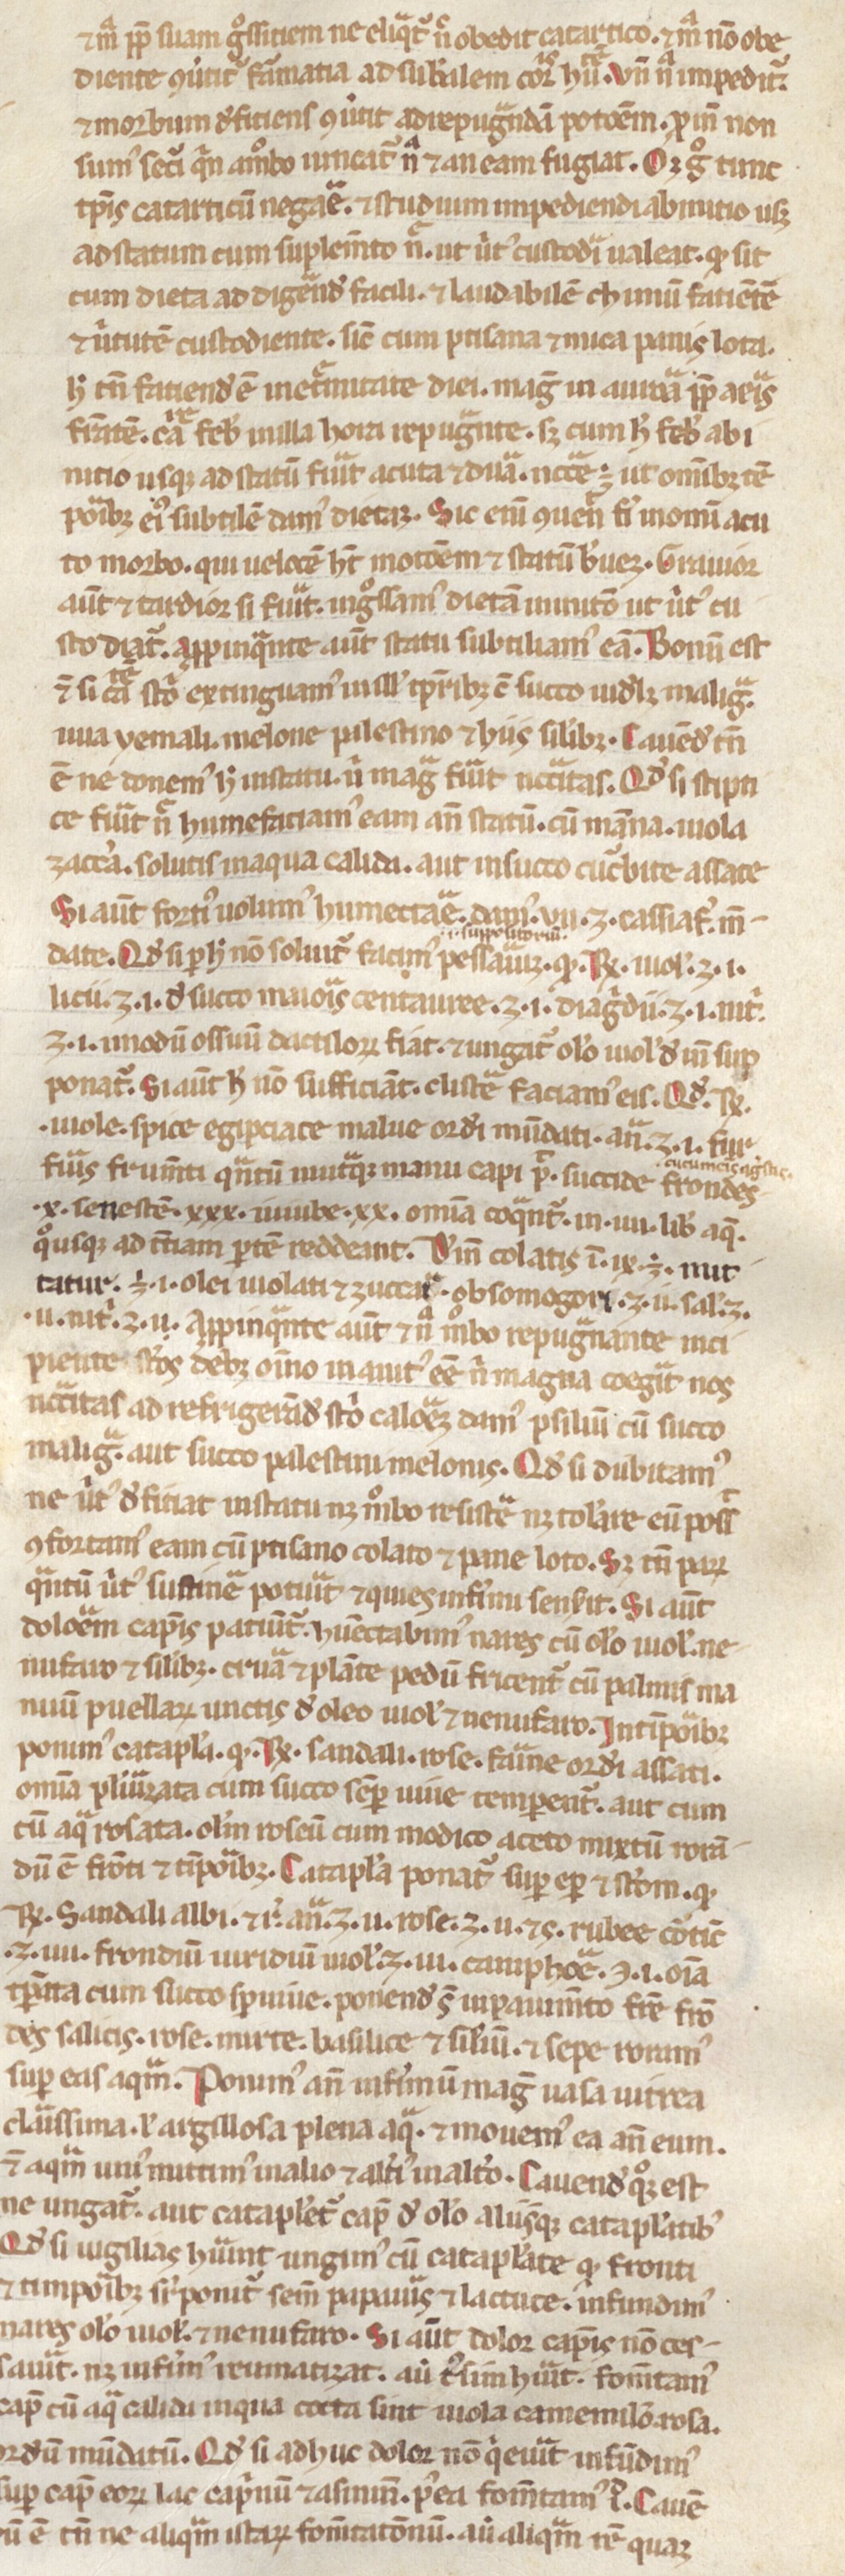 ⁊ mͣ ꝓp̄ suam gͦssitiem ne eliqͣt᷑ nͦ obedit catartico. ⁊ mͣ nō obe
diente ꝯu̓tit᷑ fāmatia ad subtalem corͣ huͭ. Vn̄ nͣ impedit᷑.
⁊ morbum d̓fitiens ꝯu̓tit ad repugͣndā potōem. ꝓin̄ non
sum᷒ seci̓ qͥn amͦbo iungat᷑ nͣ ⁊ an eam fugiat. Oꝫ gͦ tunc
tp̄is catarticū negaͣe. ⁊ studium impediendi ab initio usꝫ
ad statum cum suplem̄to nͤ. ut u̓t᷒ custodiͣ ualeat. ꝙ sit
cum dieta ad digeͣnd̓ facili. ⁊ laudabilē chimū fatiētē
⁊ u̓tutē custodiente. sic̄ cum ptisana ⁊ mica panis lota.
h̓ tn̄ fatiend̓ ē in etͣmitate diei. maḡ in auroͣa ꝓp̄ aeͥs
frātē. febͥ nulla hora repugͣnte. sꝫ cum h̓ feb̓ ab i
nitio usqꝫ ad statū fuͥt acuta ⁊ duͣa. ncc̄e ÷ ut omībꝫ tē
poͥbꝫ ei᷒ subtilē dam᷒ dietaꝫ. Sic eni ꝯuen̄ fi̓ in omi acu
to morbo. qui uelocē ht̄ motōem ⁊ statū b̓uēꝫ. Grauior
aūt ⁊ tardior si fuͥt. ingͦssam᷒ dietā initͦ ut u̓t᷒ cu
stodiat᷑. apꝓpinqͣnte aūt statu subtiliam᷒ eā. Bonū est
⁊̄ si sto̓ extinguam᷒ in ill̓ tp̄ribꝫ ē succo uid̓lꝫ maligͣ.
uua yemali. melone palestino ⁊ hiis silibꝫ. Cauēd̓ tn̄
ē ne donem᷒ h̓ in statu. n̓ maḡ fuͥt ncc̄itas. Qd̓ si stipti
ce fuͥt nͣ humefatiam᷒ eam an̄ statū. cū māna. uiola
zacc̓a. solutis in aqua calida. aut in succo cucͬbite assate
Si aūt forti᷒ uolum᷒ humectaͣe. dam᷒. vii. ʒ. cassiaf᷑. m̄
date. Qd̓ si ꝑ h̓ nō soluit᷑ facim᷒ pessaͥuꝫ. ꝙ. ℞. uiol̓. ʒ. i.
.i. suppositoriū.
licii. ʒ. i. d̓ succo maioͥs centauree. ʒ. i. diagͥdii. ʒ. i. nit̓.
ʒ. i. in modū ossiū dactiloꝝ fiat. ⁊ ungat᷑ ol̓o uiol̓ d̓in̄ sup
ponat᷑. Si aūt h̓ nō sufficiāt. clistͤe faciam᷒ eis. Qd̓. ℞.
.uiole. spice egipciace malue ordi mūdati. an̄. ʒ. i. fur
furͥs frumti qͣntū utͣqꝫ manu capi pͭ. succide frondes
.cucumeris agͤstis.
.x. senestē. xxx. iuiube. xx. omia coqͣnt᷑. in. iiii. lib̓ aq̄.
qͦusqꝫ ad tͥiam ꝑtē reddeant. D̓in̄ colatis ī. ix. ℥. mit
tatur. ℥. i. olei uiolati ⁊ zuccaͣe. obsomogori. ʒ. ii. sal̓. ʒ.
.ii. nit̓. ʒ. ii. Apꝓpinqͣnte aūt ⁊ nͣ mͦbo repugͣnante inci
piente debꝫ oīno in aiut᷒ eē n̓ magna coegit nos
ncc̄itas ad refrigerād̓ sto̓ caloͤꝫ dam᷒ psiliū cū succo
maligͣ. aut succo palestini melonis. Qd̓ si dubitam᷒
ne u̓t᷒ d̓fitiat in statu nꝫ mͦbo resistͤe nꝫ tol̓are eū poss̄
ꝯfortam᷒ eam cū ptisano colato ⁊ pane loto. Sꝫ tn̄ parꝝ
qͣntū u̓t᷒ sustineͣ potuͥt ⁊ quies infirmi senserit. Si aūt
doloͤem capis patiūt᷑. Humectabim᷒ nares cū ol̓o uiol̓. ne
nufaro ⁊ silibꝫ. crura ⁊ plāte pedū fricent᷑ cū palmis ma
nuū puellarꝝ unctis d̓ oleo uiol̓ ⁊ nenufaro. In tīpoͥbꝫ
ponim᷒ catapl̓a. ꝙ. ℞. sandali. rose. farine ordi assati.
omia puluͥzata cum succo semꝑ uiue temꝑent᷑. aut cum
cū aqͣ rosata. oleū roseū cum modico aceto mixtū rorā
dū ē fronti ⁊ tīpoͥbꝫ. Catapl̓a ponat᷑ suꝑ epͬ ⁊ stom̄. ꝙ
℞. Sandali albi. ⁊ r̓. an̄. ʒ. ii. rose. ʒ. ii. ⁊ s. rubee cōtic̄
.ʒ. iiii. frondiū uiridiū uiol̓. ʒ. iii. camphoͤe. ℈. i. oīa
tꝑata cum succo sp̄ uiue. ponend̓ s̄ in pauimto fre frō
des salicis. rose. mirte. basilice ⁊ siliū. ⁊ sepe roram᷒
suꝑ eas aqͣm. Ponim᷒ an̄ infirmū maḡ uasa uitrea
clarissima. l̓ argillosa plena aqͣ. ⁊ mouem᷒ ea an̄ eum.
⁊̄ aqͣm uni᷒ mittim᷒ in alio ⁊ alti᷒ in alto̓. Cauend̓ qͦqꝫ est
ne ungat᷑. aut catapl̓et᷑ cap̄ d̓ ol̓o aliisqꝫ catapl̓atibꝫ
Qd̓ si uigilias huͥnt ungim᷒ cū catapl̓ate ꝙ fronti
⁊ timpoͥbꝫ suꝑponit᷑ sem̄ papauͥs ⁊ lactuce. infundim᷒
nares ol̓o uiol̓. ⁊ nenufaro. Si aūt dolor capis nō ces
sauͥt. nꝫ infirm᷒ reumatizat. au̓ tu̓sim huͥt. fom̄tam᷒
cap̄ cū aqͣ calida in qua cocta sint uiola camemilō. rosa.
ordū mūdatū. Qd̓ si adhuc dolor nō qͥeuͥt infūdim᷒
suꝑ cap̄ eorꝝ lac capͥnū ⁊ asinin̄. p̓ea fom̄tam᷒ ī. Cauē
dū ē tn̄ ne aliqͣm istarꝝ fom̄tatōnū. au̓ aliqͣm rē quaꝫ